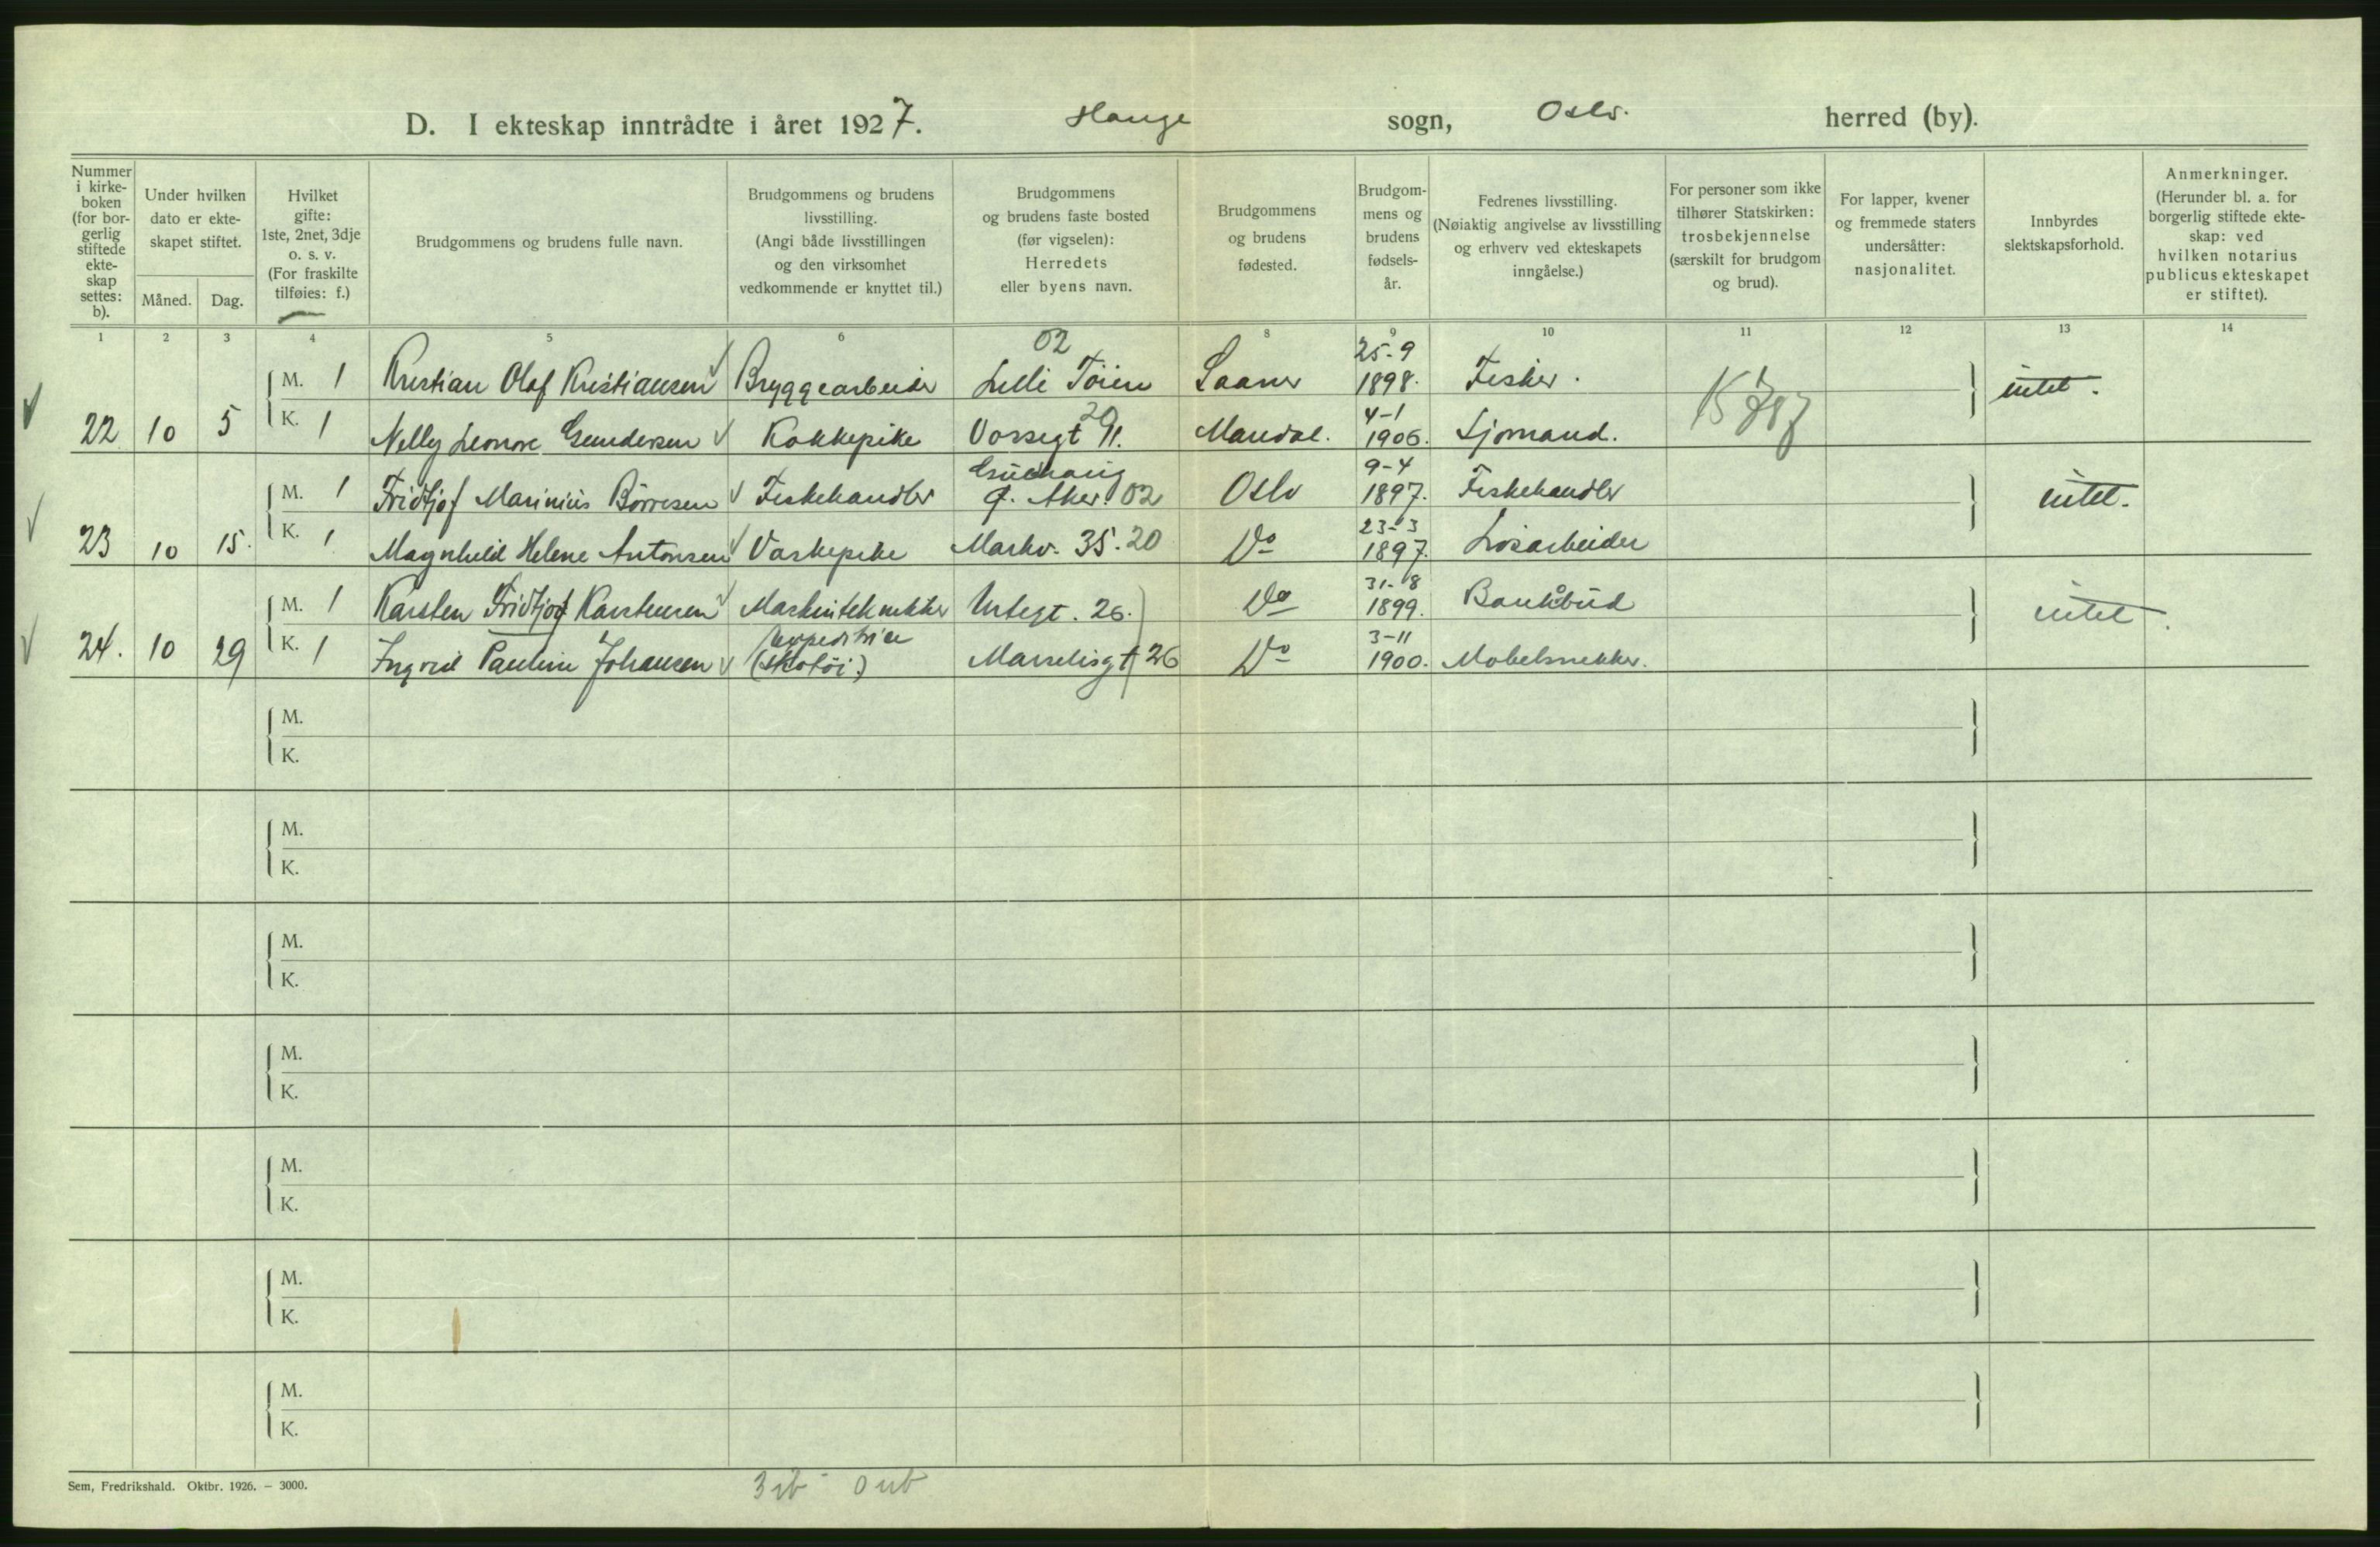 D. I ekteskap inntrådte i året 1927. Hauge sogn, Oslo. herred (by).
Nummer i kirkeboken (for borgerlig stiftede ekteskap settes: b).
Under hvilken dato er ekteskapet stiftet.
Måned. Dag.
Hvilket gifte: 1ste, 2net, 3dje o. s. v. (For fraskilte tilføies: f.)
Brudgommens og brudens fulle navn.
Brudgommens og brudens livsstilling. (Angi både livsstillingen og den virksomhet vedkommende er knyttet til.)
Brudgommens og brudens faste bosted (før vigselen): Herredets eller byens navn.
Brudgommens og brudens fødested.
Brudgommens og brudens fødselsår.
Fedrenes livsstilling. (Nøiaktig angivelse av livsstilling og erhverv ved ekteskapets inngåelse.)
For personer som ikke tilhører Statskirken: trosbekjennelse (særskilt for brudgom og brud).
For lapper, kvener og fremmede staters undersåtter: nasjonalitet.
Innbyrdes slektskapsforhold.
Anmerkninger. (Herunder bl. a. for borgerlig stiftede ekteskap: ved hvilken notarius publicus ekteskapet er stiftet).
1 2 3 4 5 6 8 9 10 11 12 13 14
02 25-9
M. 1 Kristian Olaf Kristiansen Bryggearbeider Lille Töien 1898. Fisker. intet.
20 4-1
22 10 5 K. 1 Nelly Leonore Gundersen Kokkepike Vossegt 91. Mandal. 1906. Sjømand.
9-4
M. 1 Fridtjof Marinius Börresen Fiskehandler Ø. Aker. 02 Oslo 1897. Fiskehandler intet.
23-3
23 10 15. K. 1 Magnhild Helene Antonsen Vaskepike Markv. 35. 20 Do 1897. Løsarbeider
31-8
M. 1 Karsten Fridtjof Karstensen Maskintekniker Urtegt. 26. Do 1899. Bankbud intet.
Expeditrice 3-11
24. 10 29 K. 1 Ingrid Pauline Johansen (skotöi) Marselisgt 26 Do 1900. Møbelsnekker.
M.
K.
M.
K.
M.
K.
M.
K.
M.
K.
M.
K.
M.
K.
Sem, Fredrikshald. Oktbr. 1926. — 3000.
3 ib - 0 ub